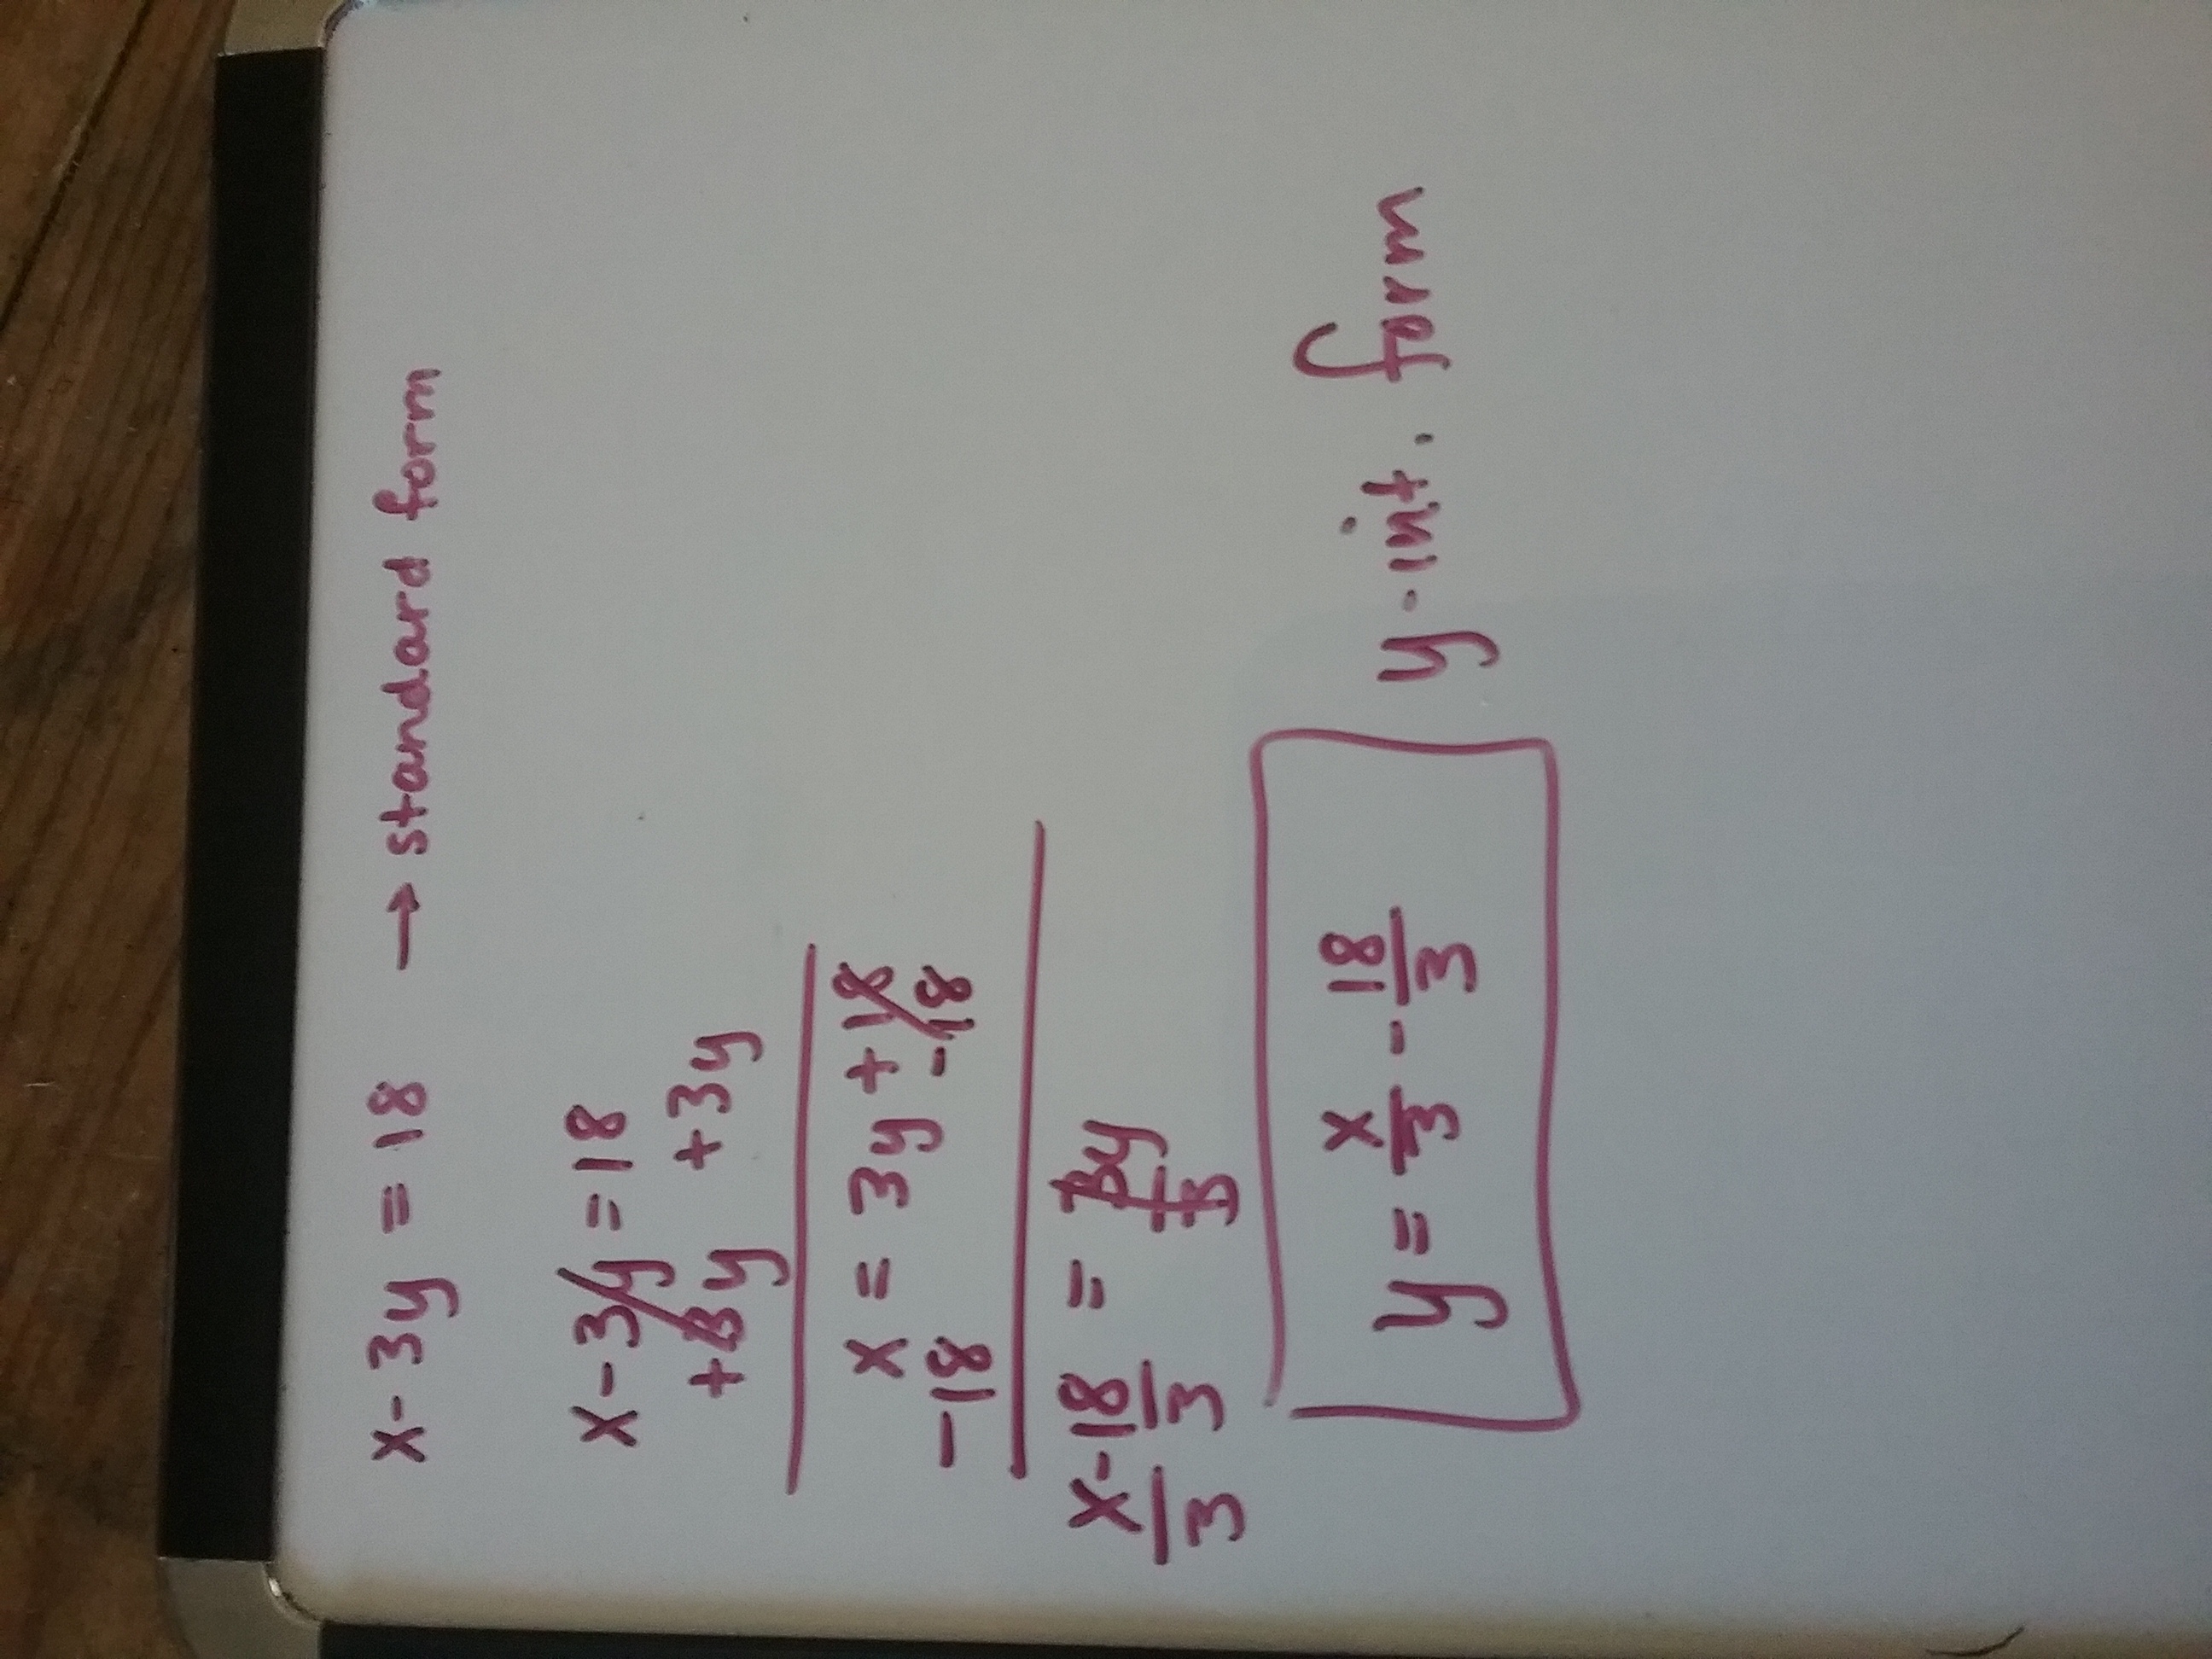 x - 3y = 18 → standard form
x - 3y = 18
+3y +3y
x = 3y + 18
-18 -18
x - 18 = 3y
3 3 3
y = x/3 - 18/3 y-int. form